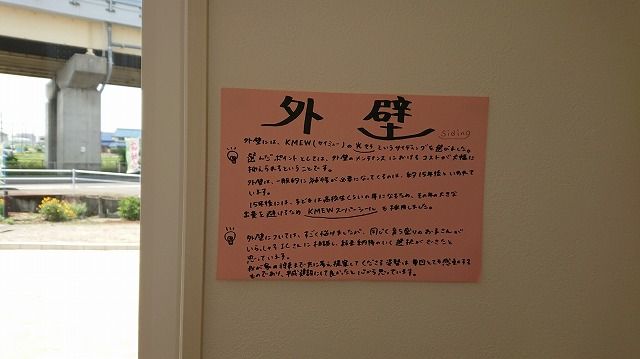 外壁
Siding
外壁には、KMEW(ケイミュー)の光セラというサイディングを選びました。
選んだポイントとしては、外壁のメンテナンスにおけるコストが大幅に
抑えられるということです。
外壁は、一般的に補修が必要になってくるのは、約15年後といわれて
います。
15年後には、子どもは高校生くらいの年になるため、その年の大きな
出費を避けるため KMEWスーパーシール を採用しました。
外壁については、すごく悩みましたが、同じく育ち盛りのお子さんが
いらっしゃる 工くさんに相談し、結果納得のいく選択ができたと
思っています。
我が家の将来まで共に考え提案してくださる姿勢は毎回とても感動する
ものであり、建設にして良かったと心から思っています。